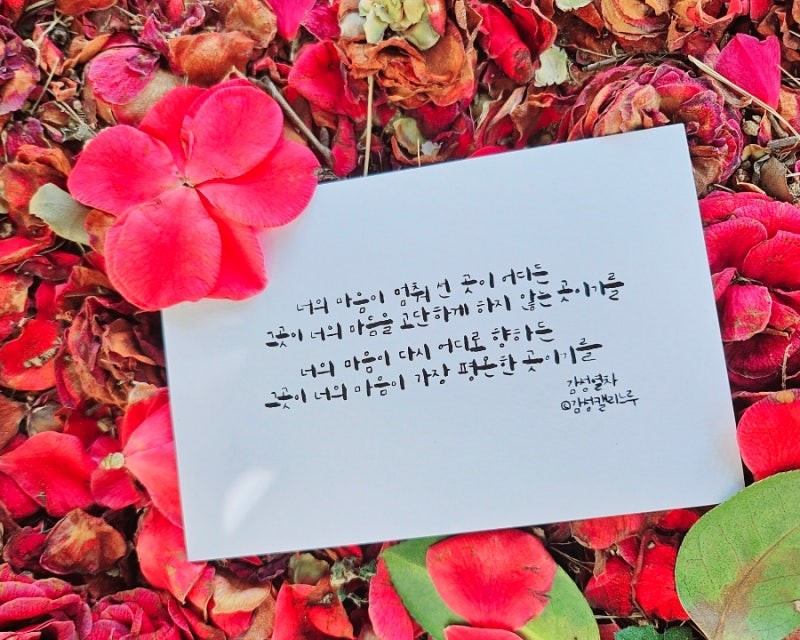 너의 마음이 멈춰 선 곳이 어디든
그곳이 너의 마음을 고단하게 하지 않는 곳이기를
너의 마음이 다시 어디로 향하든
그곳이 너의 마음이 가장 평온한 곳이기를
감성열차
©감성캘리느루